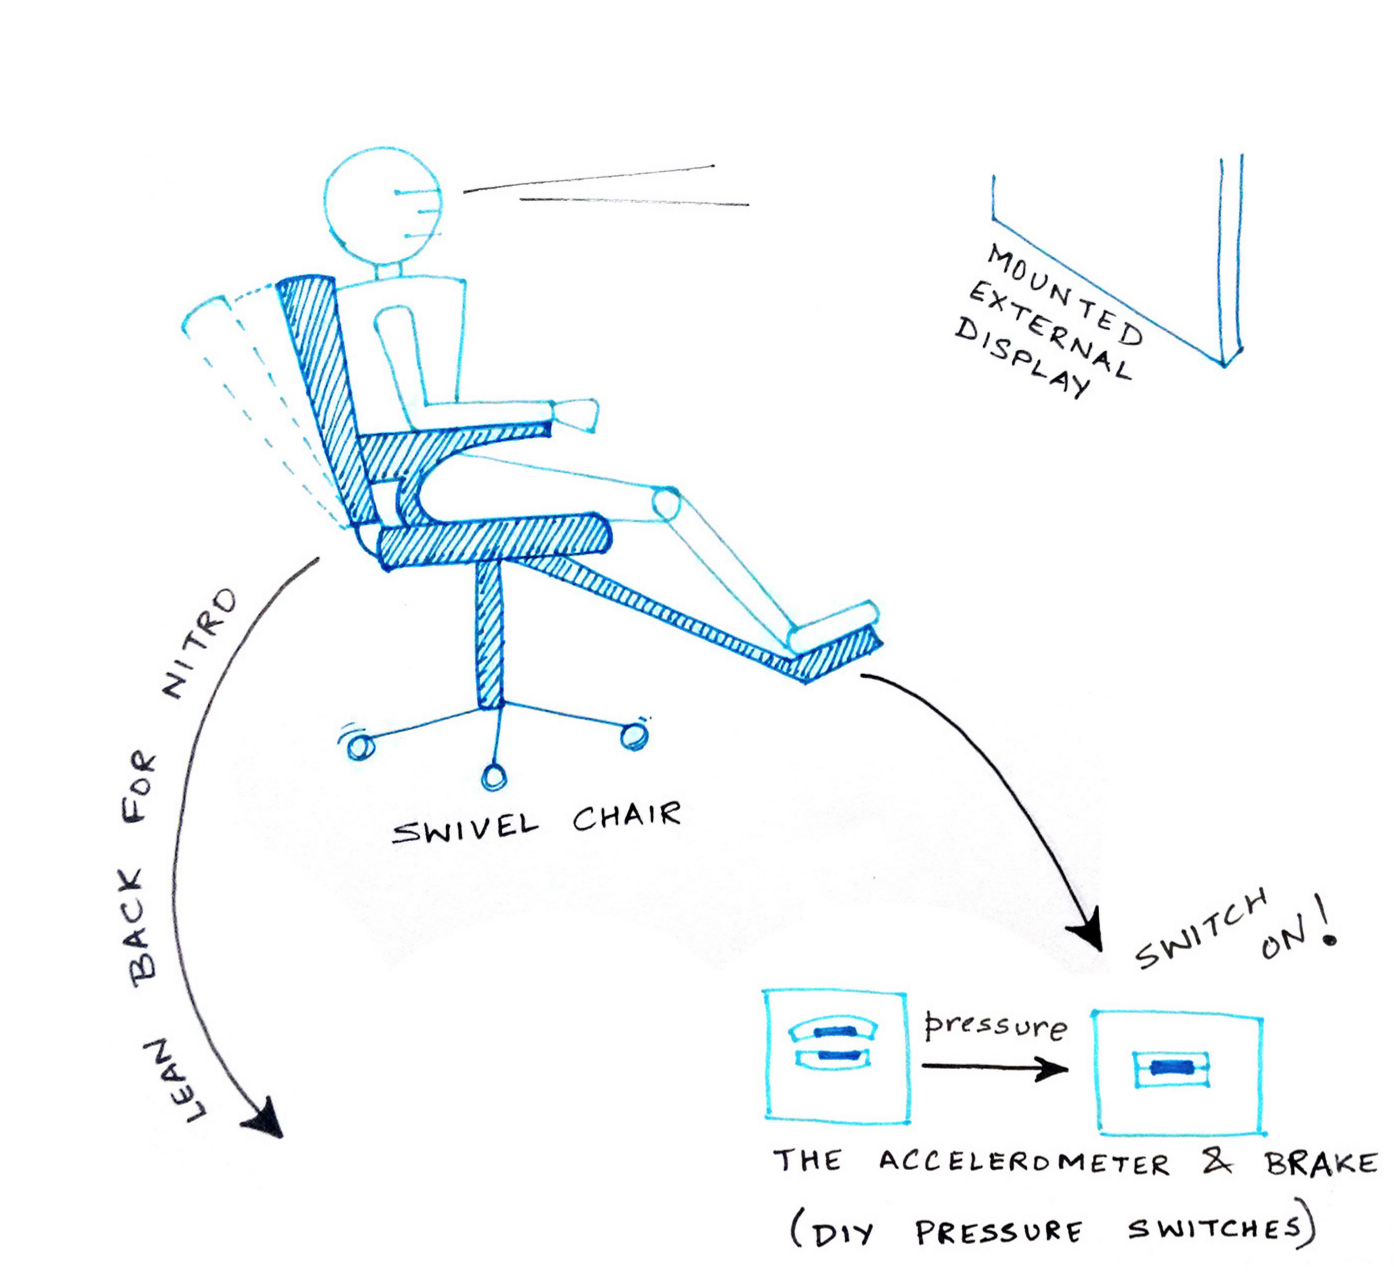 MOUNTED
EXTERNAL
DISPLAY
LEAN BACK FOR NITRO
SWIVEL CHAIR
SWITCH
ON!
pressure
THE ACCELEROMETER & BRAKE
(DIY PRESSURE SWITCHES)